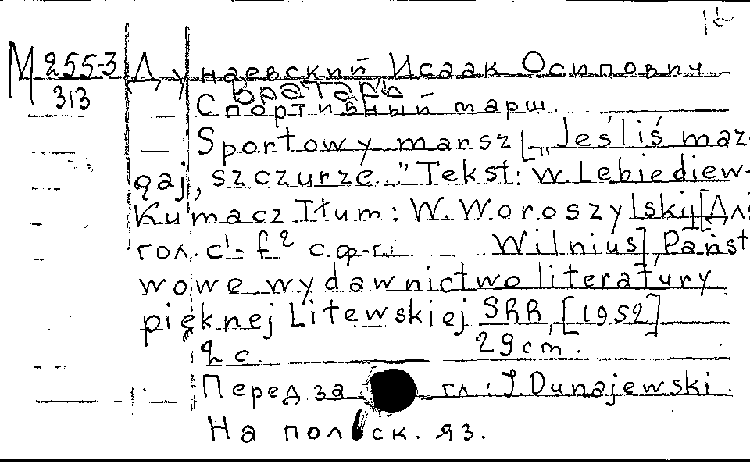 М 255-3 Дунаевский Исаак Осипович
313 Вратарь
Спортивный марш.
Sportowy marsz [„Jeśliś maz-
gaj, szczurze..." Tekst: W. Lebiediew-
Kumacz Tłum: W. Woroszylskij [Для
гол. c¹-f² с.ф-п. Wilnius], Państ
wowe wydawnictwo literatury
pięknej Litewskiej SRR, [1952]
2 с. 29 cm.
Перед заг гл: J Dunajewski.
На польск. яз.